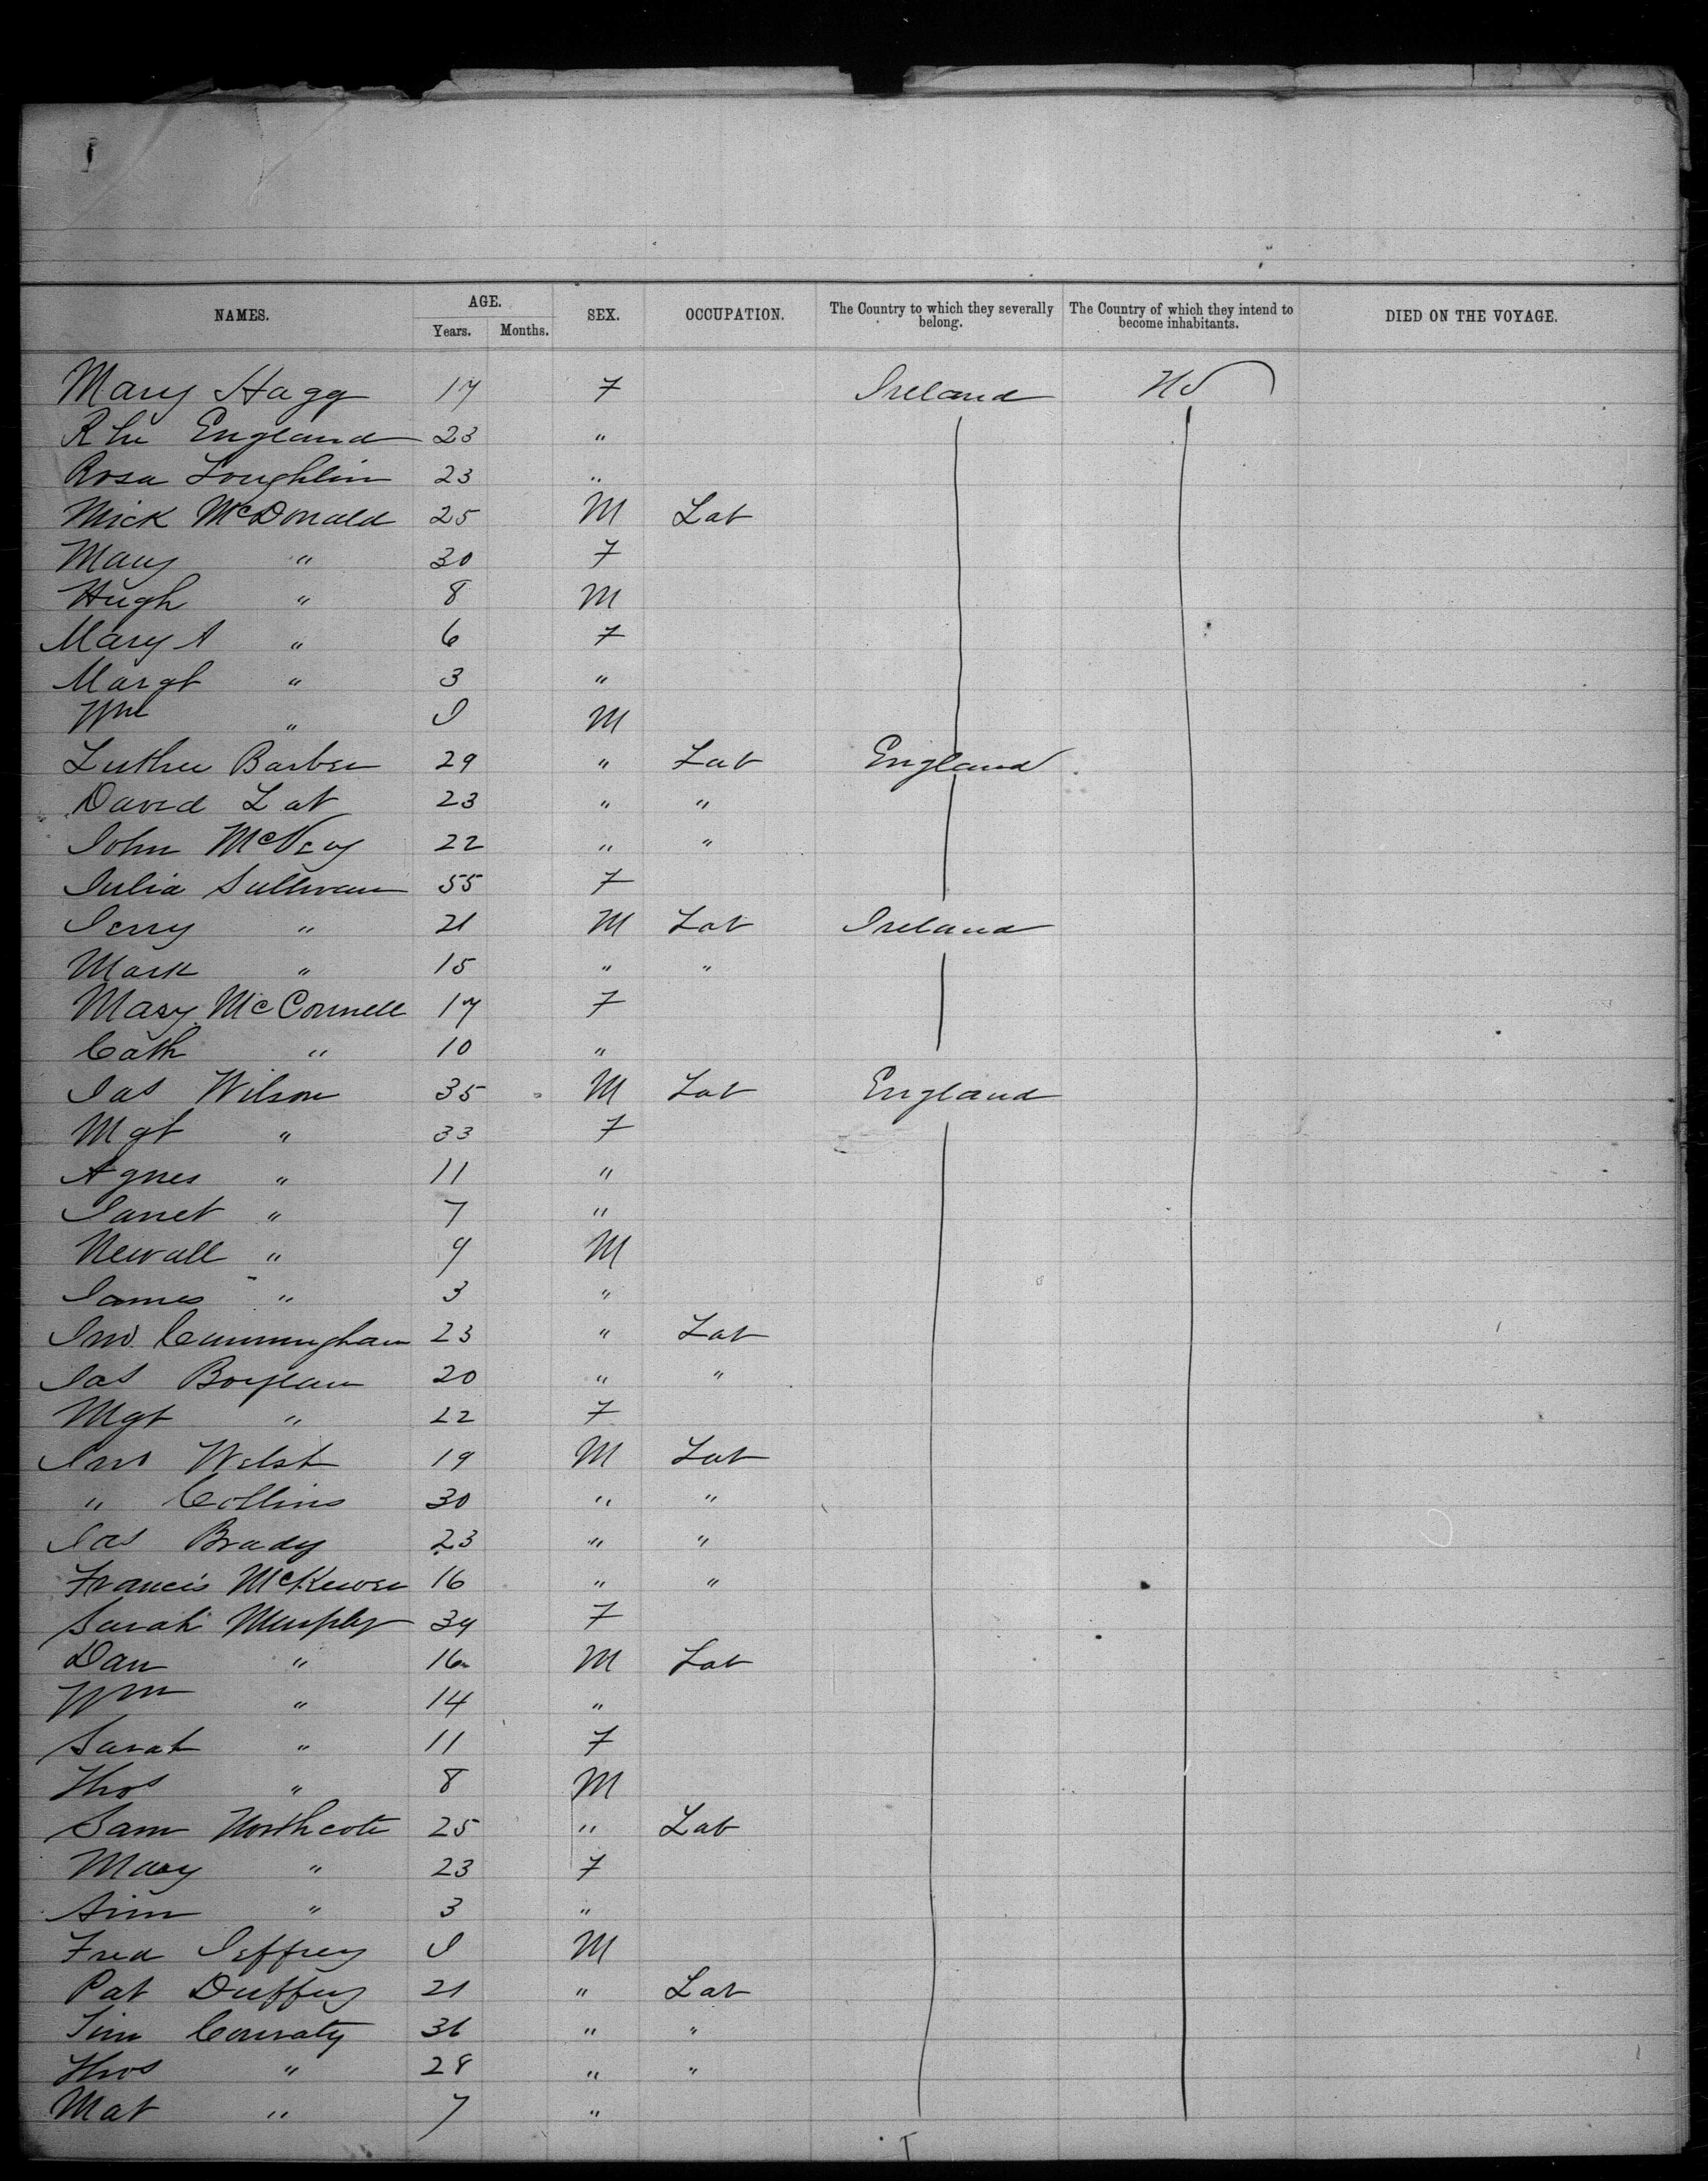 NAMES. AGE. SEX. OCCUPATION. The Country to which they severally belong. The Country of which they intend to become inhabitants. DIED ON THE VOYAGE.
Years. Months.
Mary Hagg 17 F Ireland US
England 23 "
Rosa Loughlin 23 "
Mick McDonald 25 M Lab
Mary " 30 F
Hugh " 8 M
Mary A " 6 F
Margt " 3 "
Wm " I M
Luther Barber 29 " Lab England
David Lat 23 " "
John McVey 22 " "
Julia Sullivan 55 F
Jerry " 21 M Lab Ireland
Mark " 15 " "
Mary McConnell 17 F
Cath " 10 "
Jas Wilson 35 M Lab England
Mgt " 33 F
Agnes " 11 "
Janet " 7 "
Newall " 9 M
James " 3 "
Jno. Cunningham 23 " Lab
Jas Boylan 20 " "
Mgt " 22 F
Jno Welsh 19 M Lab
" Collins 30 " "
Jas Brady 23 " "
Francis McKewen 16 " "
Sarah Murphy 34 F
Dan " 16 M Lab
Wm " 14 "
Sarah " 11 F
Thos " 8 M
Sam Northcote 25 " Lab
Mary " 23 F
Ann " 3 "
Fred Jeffrey I M
Pat Duffey 21 " Lab
Tim Conraty 36 " "
Thos " 28 " "
Mat " 7 "